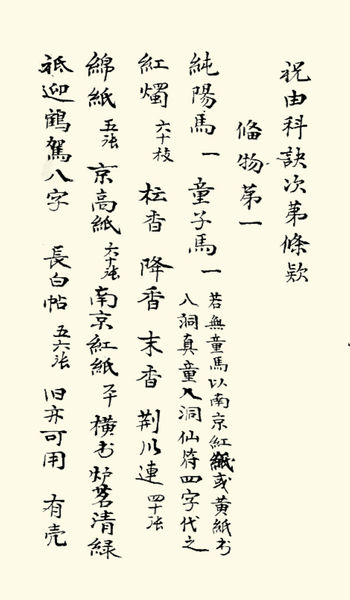 祝由科訣次第條款
備物第一
純陽馬一 童子馬一 若無童馬以南京紅紙或黃紙书
八洞真童八洞仙符四字代之
紅燭 六十枝 柱香 降香 末香 荆川連 四十张
綿紙 五张 京高紙 六十张 南京紅紙 橫书炉茗清緑
祗迎鶴駕八字 長白帖 五六张 旧亦可用 有壳